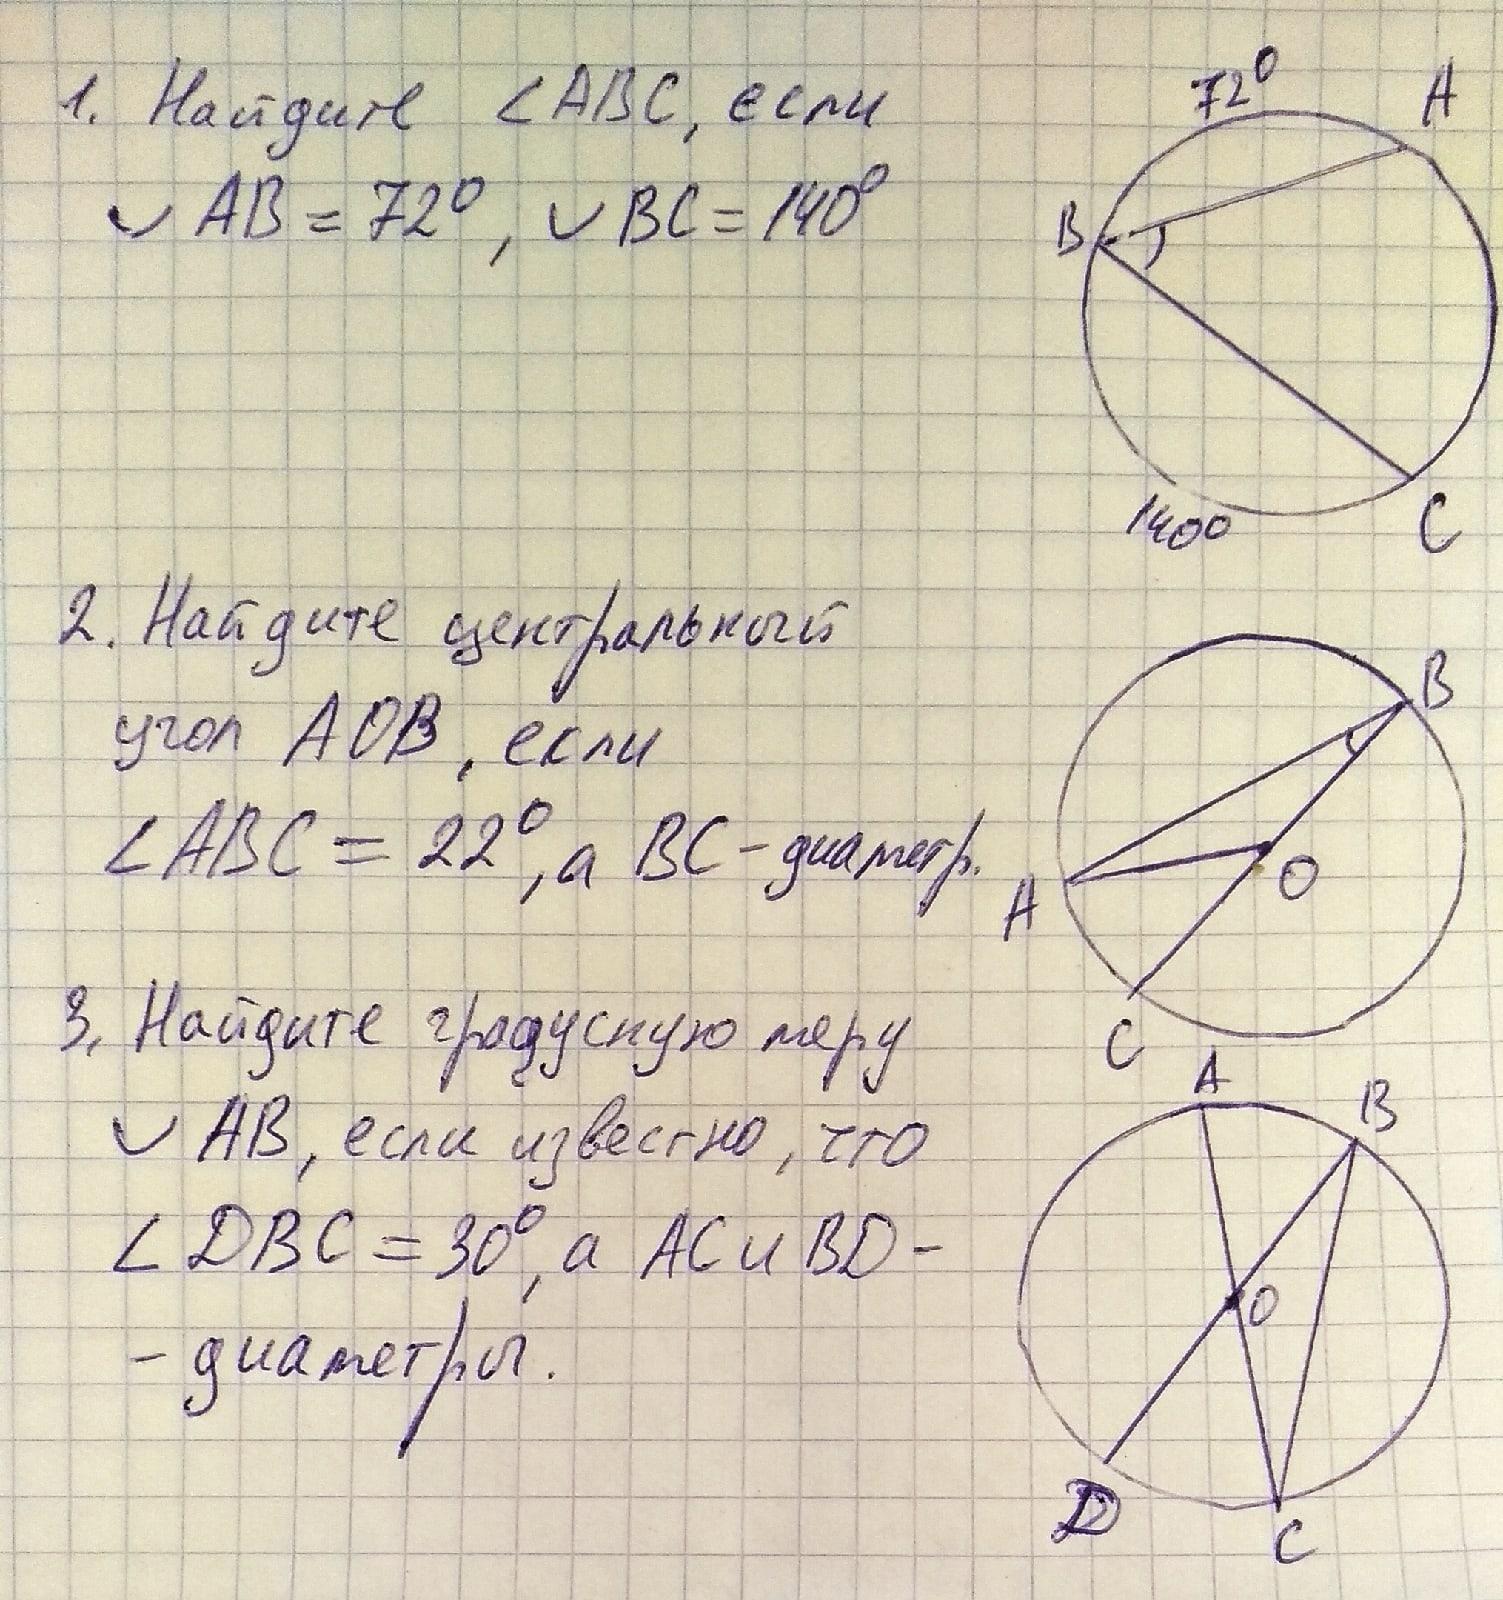 1. Найдите ∠ABC, если
◡ AB = 72°, ◡ BC = 140°
72°
A
B
140°
C
2. Найдите центральный
угол AOB, если
∠ABC = 22°, а BC - диаметр.
B
A
O
C
3. Найдите градусную меру
◡ AB, если известно, что
∠DBC = 30°, а AC и BD -
- диаметры.
A
B
O
D
C